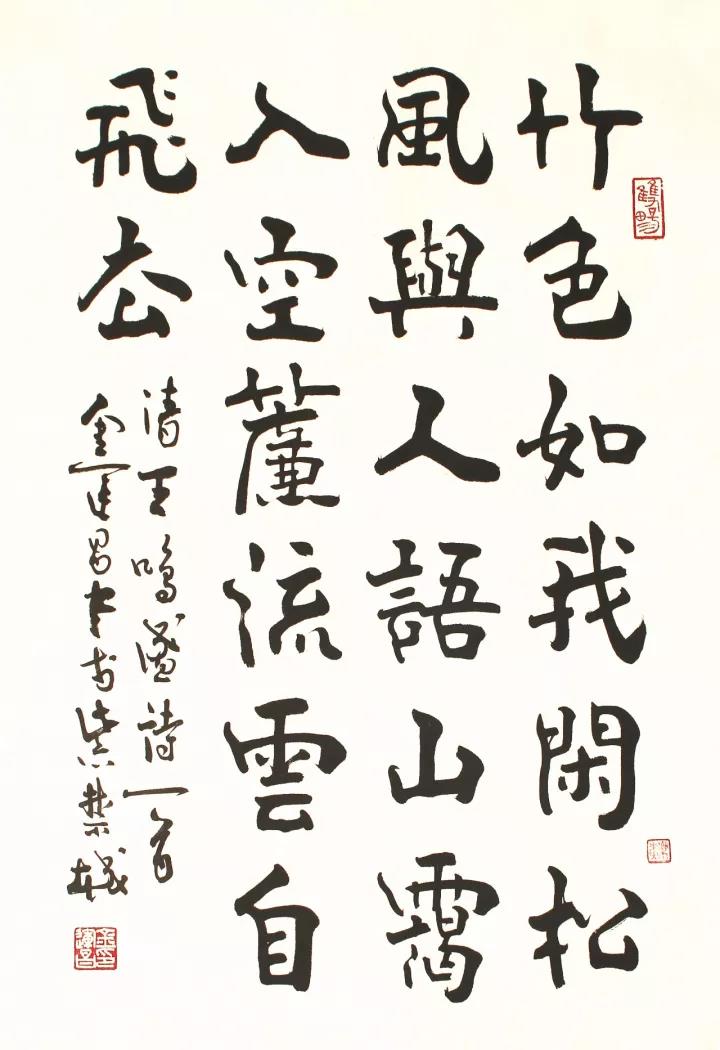 竹色如我閑松
風與人語山靄
入空簾流雲自
飛去
清王鳴盛詩一首
金運昌書於紫禁城